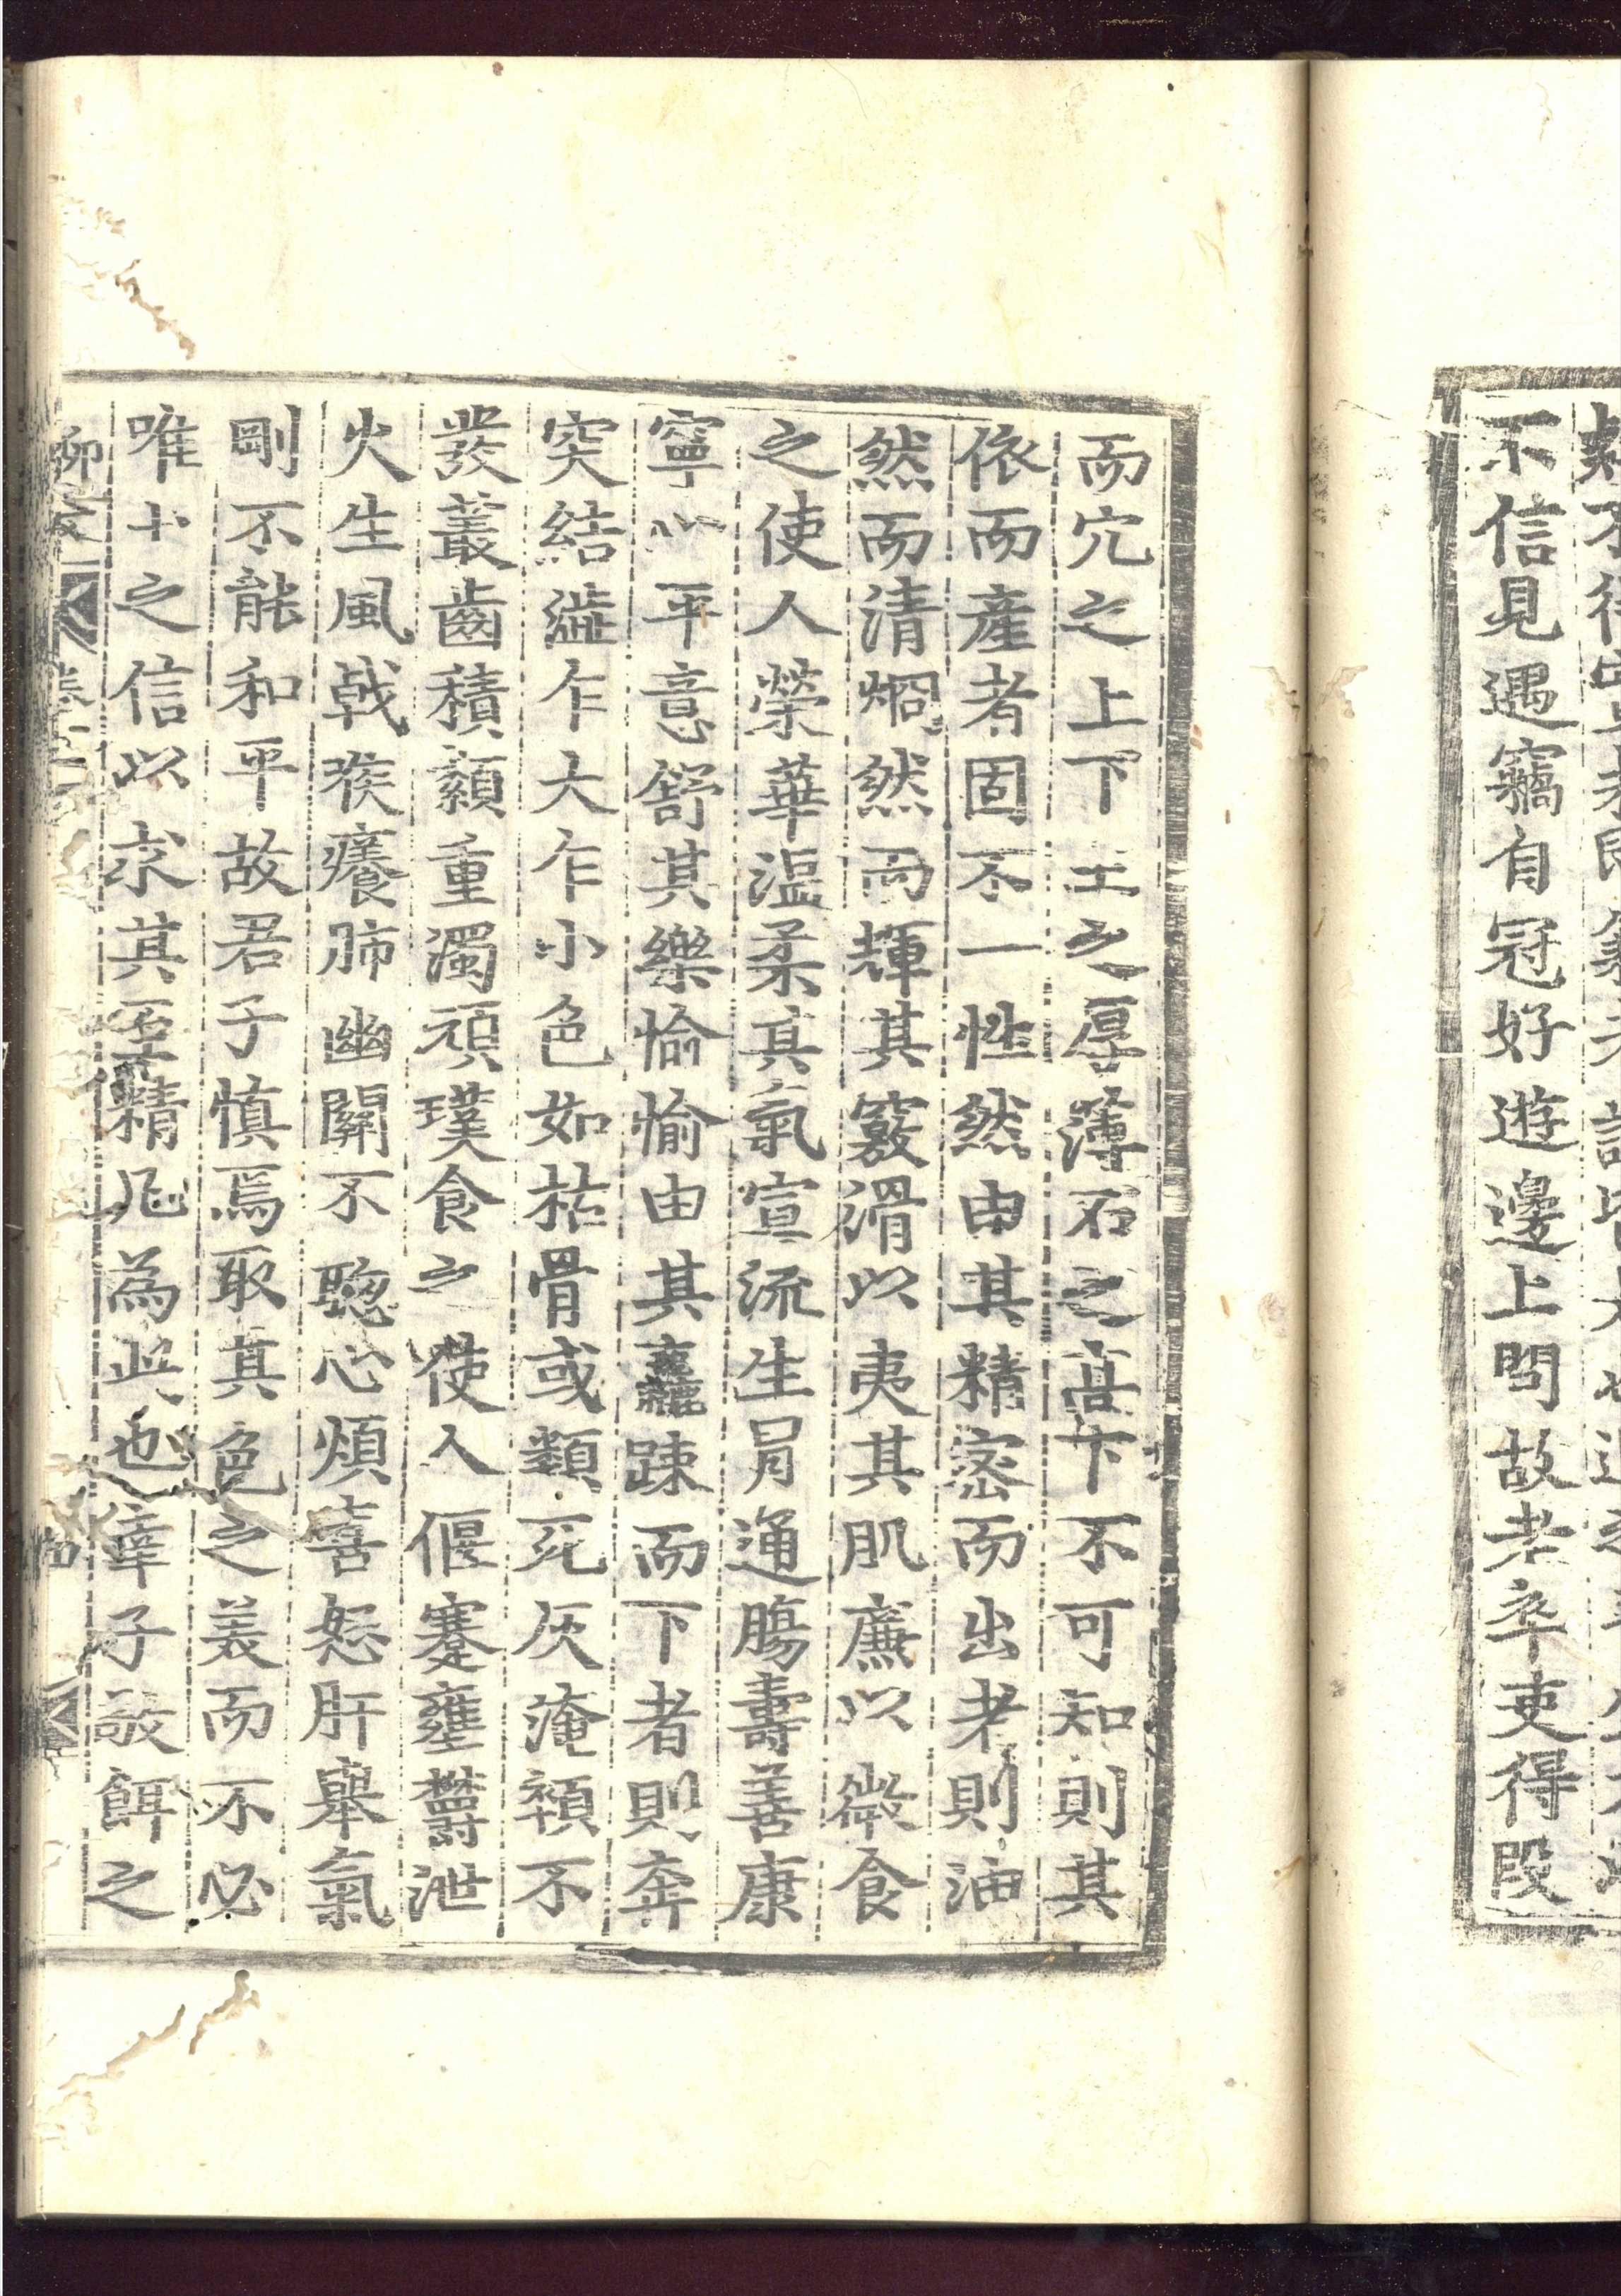 不信見遇竊自冠好遊邊上問故老卒吏得段
而穴之上下土之厚薄石之高下不可知則其
依而產者固不一性然由其精密而出者則油
然而清烱然而輝其竅滑以夷其肌廉以微食
之使人榮華溫柔其氣宣流生胃通腸壽善康
寧心平意舒其樂愉愉由其麤疎而下者則奔
突結澁乍大乍小色如枯骨或類死灰淹顇不
發叢齒積纇重濁頑璞食之使人偃蹇壅鬱泄
火生風戟喉癢肺幽關不聦心煩喜怒肝舉氣
剛不能和平故君子慎焉取其色之美而不必
唯土之信以求其至精凡為此也幸子敬餌之
柳文